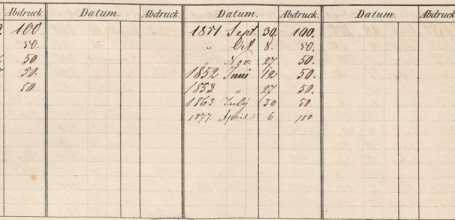 Abdruck. Datum. Abdruck. Datum. Abdruck. Datum. Abdruck
100 1851 Sept. 30. 100.
50. " Oct. 8. 50.
50 " Nov. 27 50.
50. 1852 Juni 12 50.
50 1853 " 27 50.
1863 July 30 50
1877 April 6 100